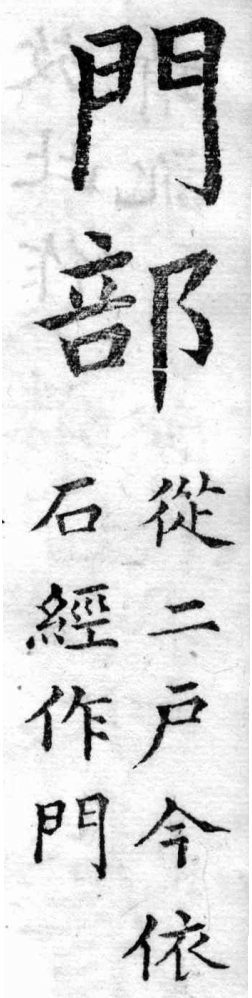 門部
從二戶今依
石經作門